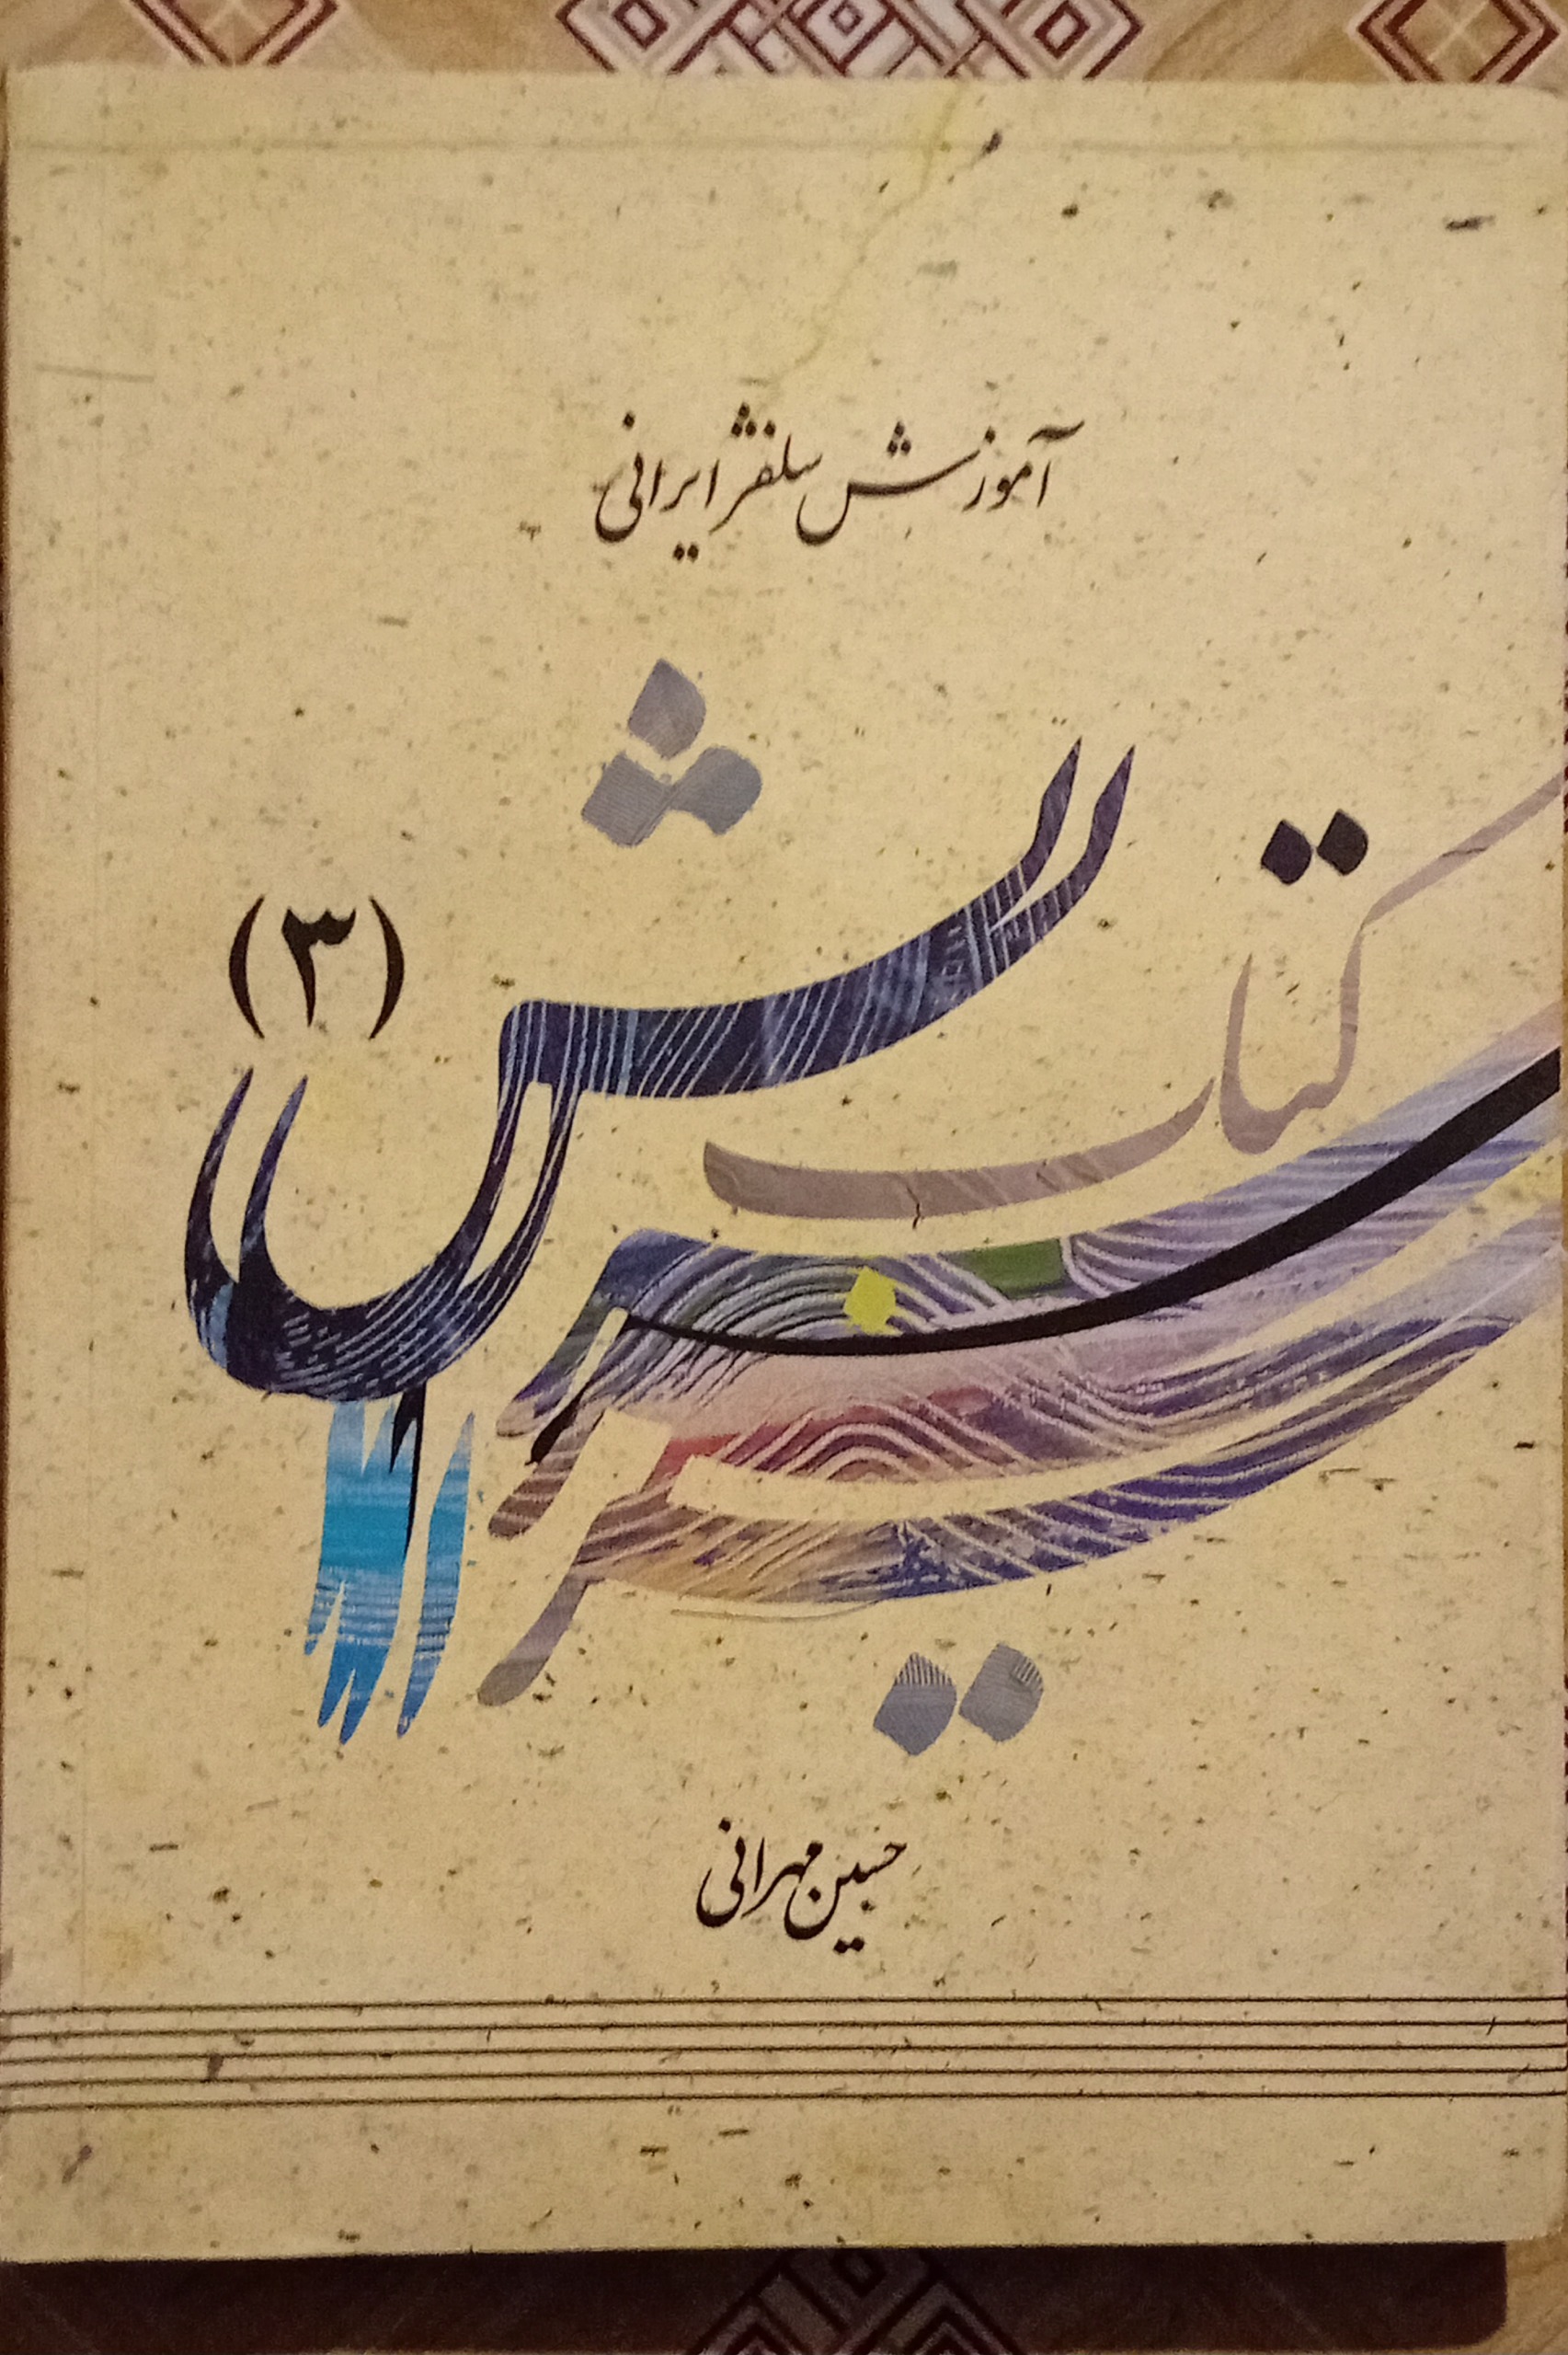 آموزش سلفژ ایرانی
کتاب
سرایش (۳)
حسین مهرانی